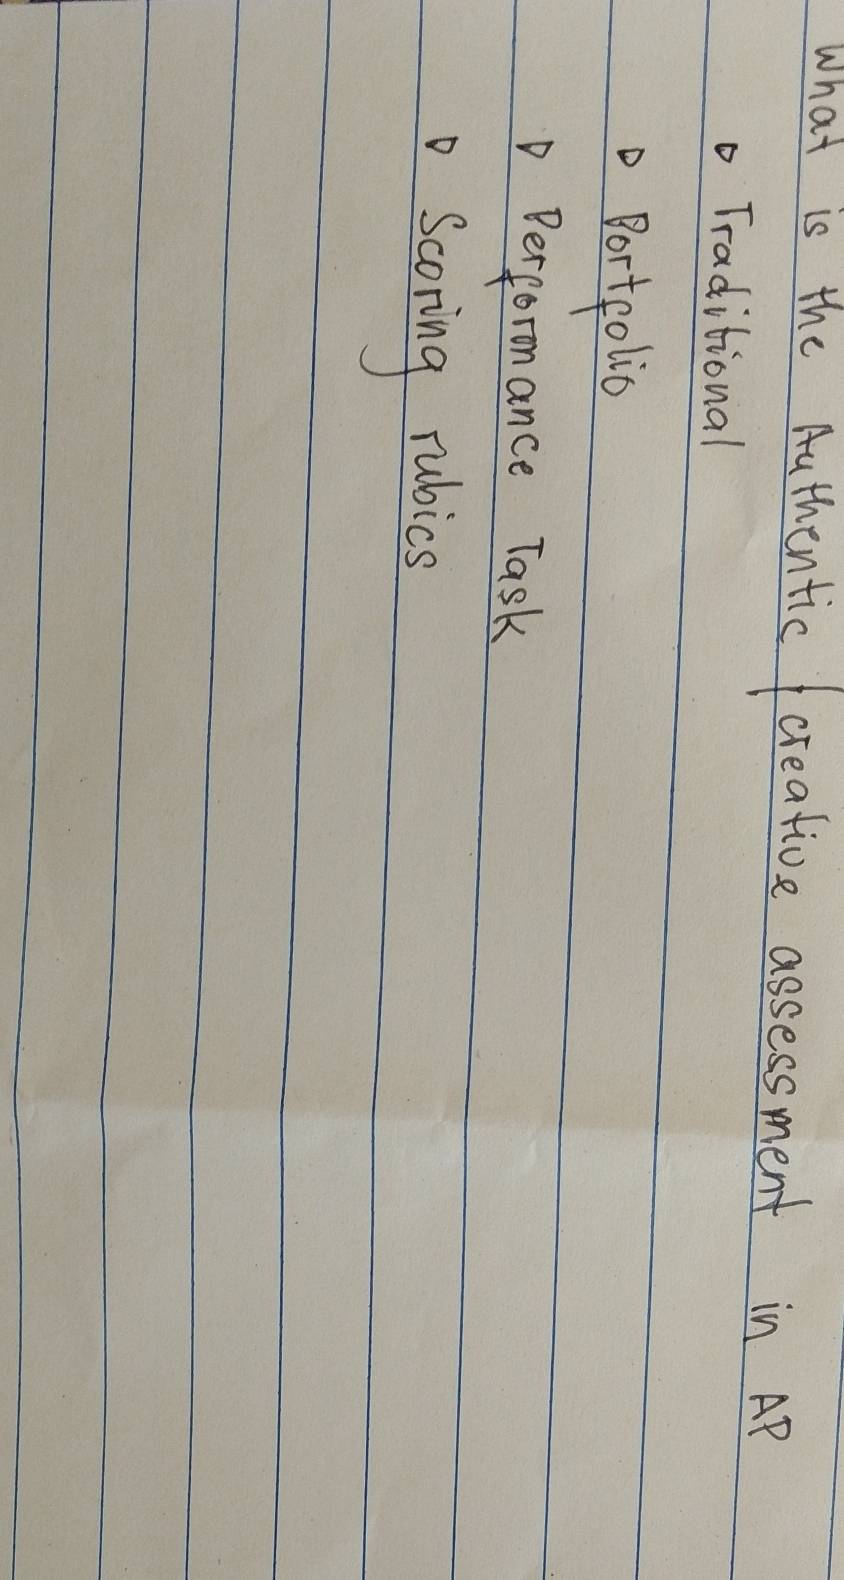 What is the Authentic / creative assessment in AP
▷ Traditional
▷ Portfolio
▷ Performance Task
▷ Scoring rubics